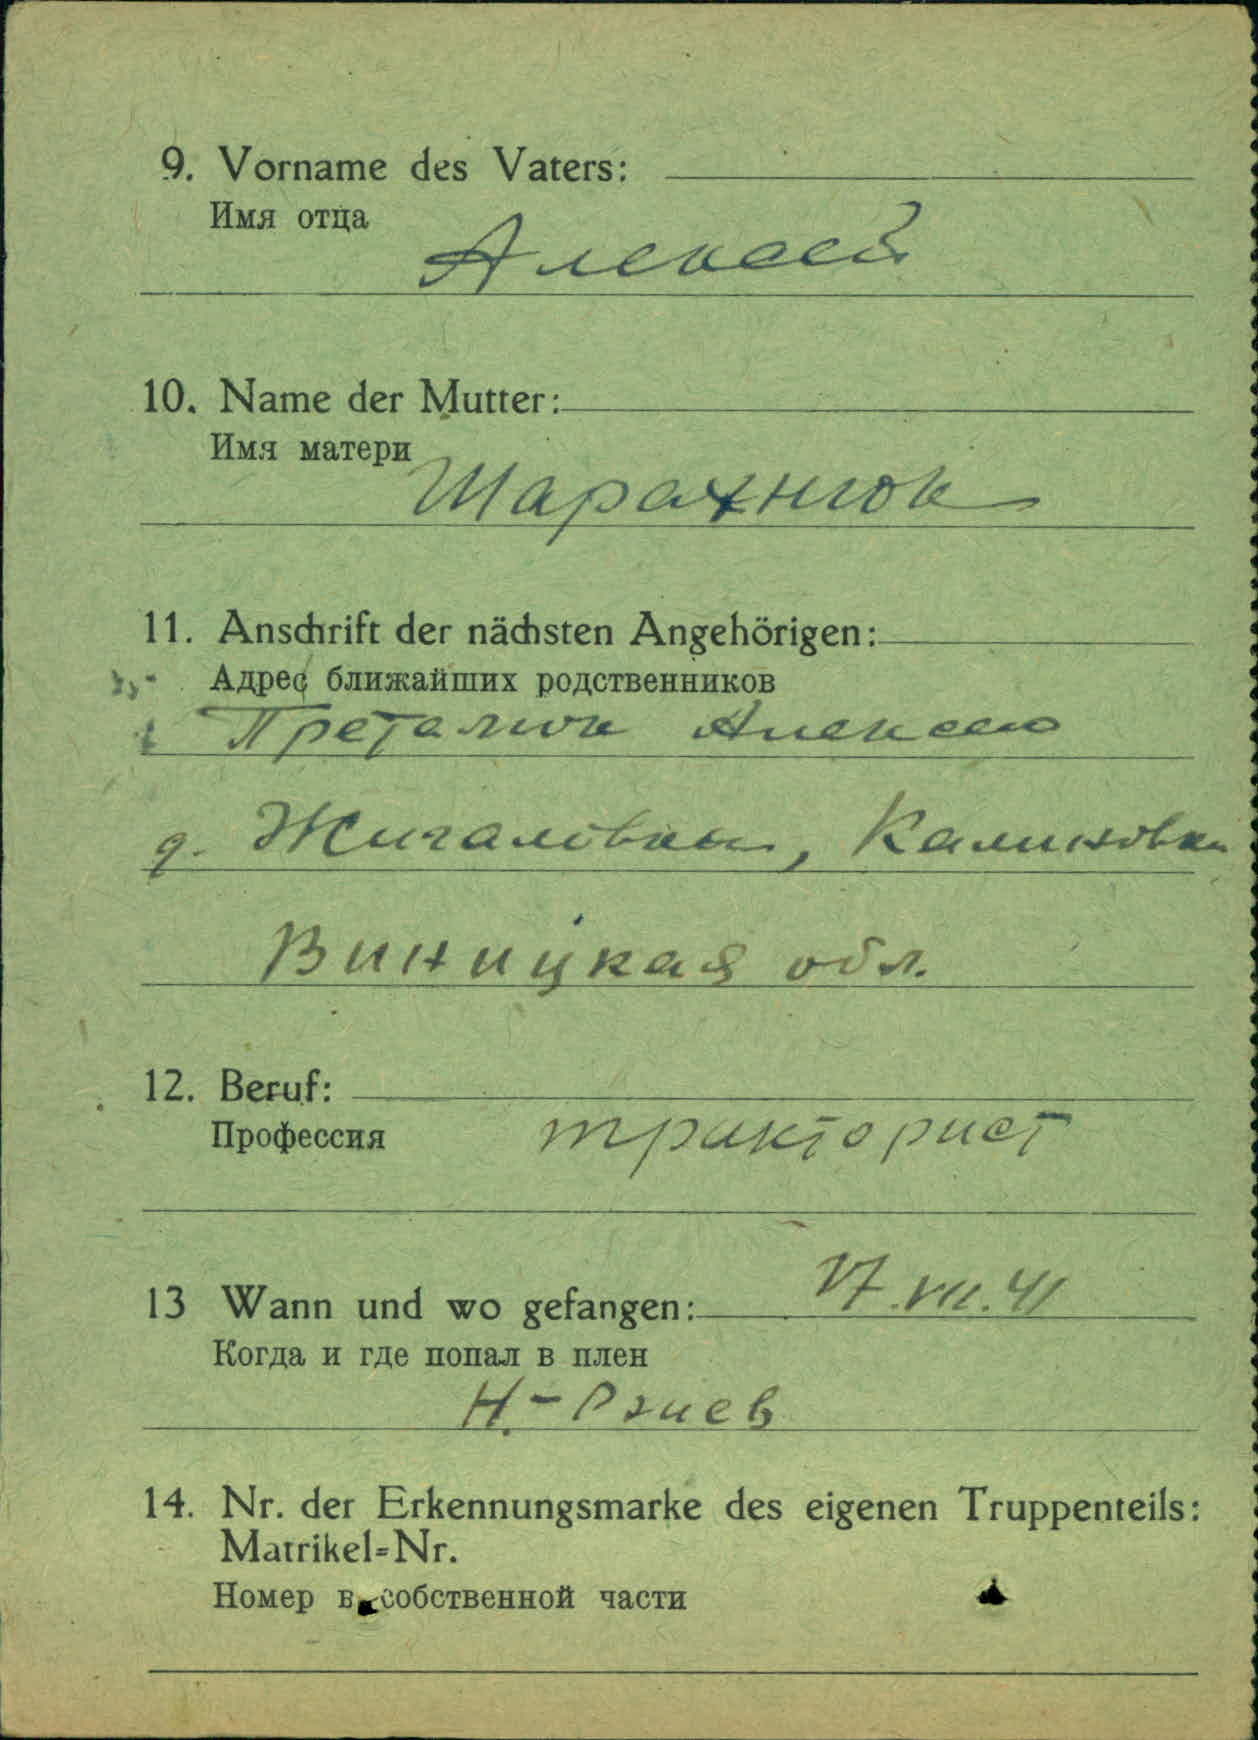 9. Vorname des Vaters:
Имя отца
Алексей
10. Name der Mutter:
Имя матери
Шарахнюк
11. Anschrift der nächsten Angehörigen:
Адрес ближайших родственников
Алексею
д. Жигаловка, Калиновка
Виницкая обл.
12. Beruf:
Профессия
тракторист
13 Wann und wo gefangen:
17.VII.41
Когда и где попал в плен
14. Nr. der Erkennungsmarke des eigenen Truppenteils:
Matrikel=Nr.
Номер в собственной части